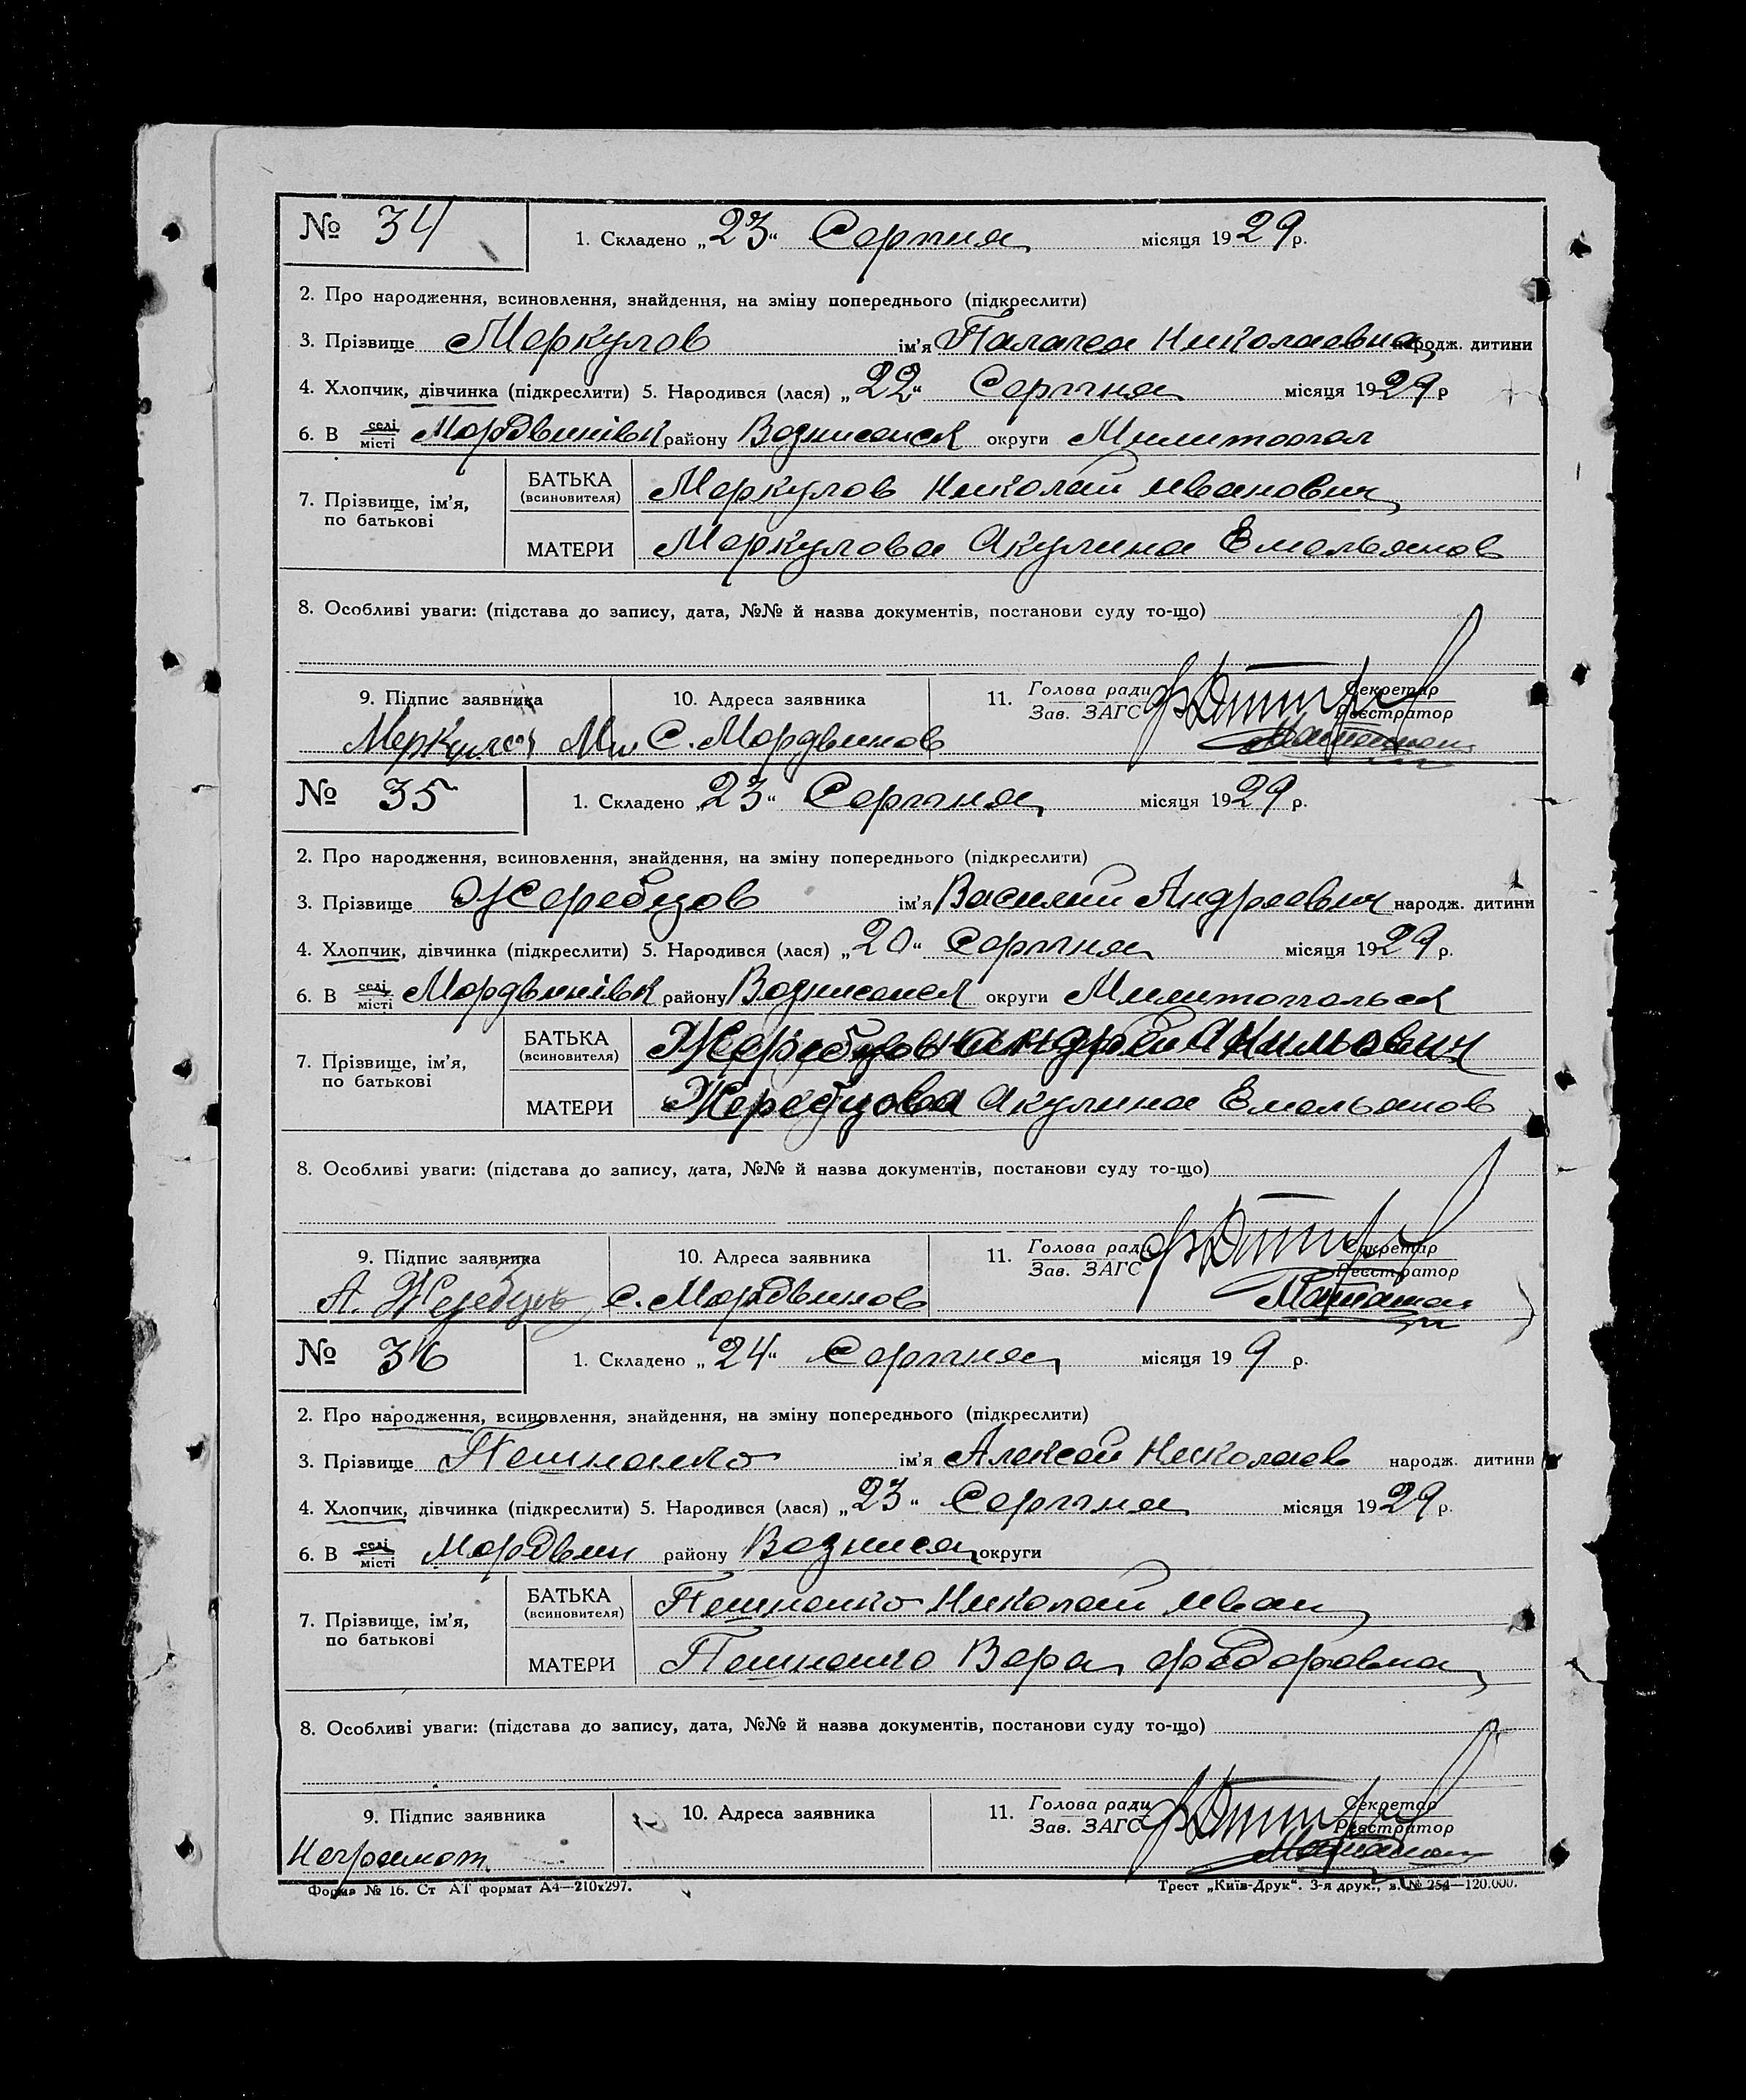 № 34 1. Складено „23“ Серпня місяця 1929 р.
2. Про народження, всиновлення, знайдення, на зміну попереднього (підкреслити)
3. Прізвище Меркулов ім'я Палагея Николаевна народж. дитини
4. Хлопчик, дівчинка (підкреслити) 5. Народився (лася) „22“ Серпня місяця 1929 р
6. В селі місті Мордвинівк району Вознисенск округи Милитопол
7. Прізвище, ім'я, по батькові
БАТЬКА (всиновителя) Меркулов Николай Иванович
МАТЕРИ Меркулова Акулина Емельянов
8. Особливі уваги: (підстава до запису, дата, №№ й назва документів, постанови суду то-що)
9. Підпис заявника 10. Адреса заявника 11. Голова ради Зав. ЗАГС Секретар Реєстратор
Меркулов С. Мордвинов
№ 35 1. Складено „23“ Серпня місяця 1929 р.
2. Про народження, всиновлення, знайдення, на зміну попереднього (підкреслити)
3. Прізвище Жеребцов ім'я Василий Андреевич народж. дитини
4. Хлопчик, дівчинка (підкреслити) 5. Народився (лася) „20“ Серпня місяця 1929 р.
6. В селі місті Мордвинівк району Вознисенск округи Милитопольск
7. Прізвище, ім'я, по батькові
БАТЬКА (всиновителя) Жеребцов Андрей
МАТЕРИ Жеребцова Акулина Емельянов
8. Особливі уваги: (підстава до запису, дата, №№ й назва документів, постанови суду то-що)
9. Підпис заявника 10. Адреса заявника 11. Голова ради Зав. ЗАГС Секретар Реєстратор
А. Жеребцов С. Мордвинов
№ 36 1. Складено „24“ Серпня місяця 19 9 р.
2. Про народження, всиновлення, знайдення, на зміну попереднього (підкреслити)
3. Прізвище Пешненко ім'я Алексей Николаев народж. дитини
4. Хлопчик, дівчинка (підкреслити) 5. Народився (лася) „23“ Серпня місяця 1929 р.
6. В селі місті Мордвин району Вознисен округи
7. Прізвище, ім'я, по батькові
БАТЬКА (всиновителя) Пешненко Николай Иван
МАТЕРИ Пешненко Вера Федоровна
8. Особливі уваги: (підстава до запису, дата, №№ й назва документів, постанови суду то-що)
9. Підпис заявника 10. Адреса заявника 11. Голова ради Зав. ЗАГС Секретар Реєстратор
Неграмот
Форма № 16. Ст АТ формат А4—210x297. Трест „Київ-Друк“. 3-я друк., з. № 254—120.000.